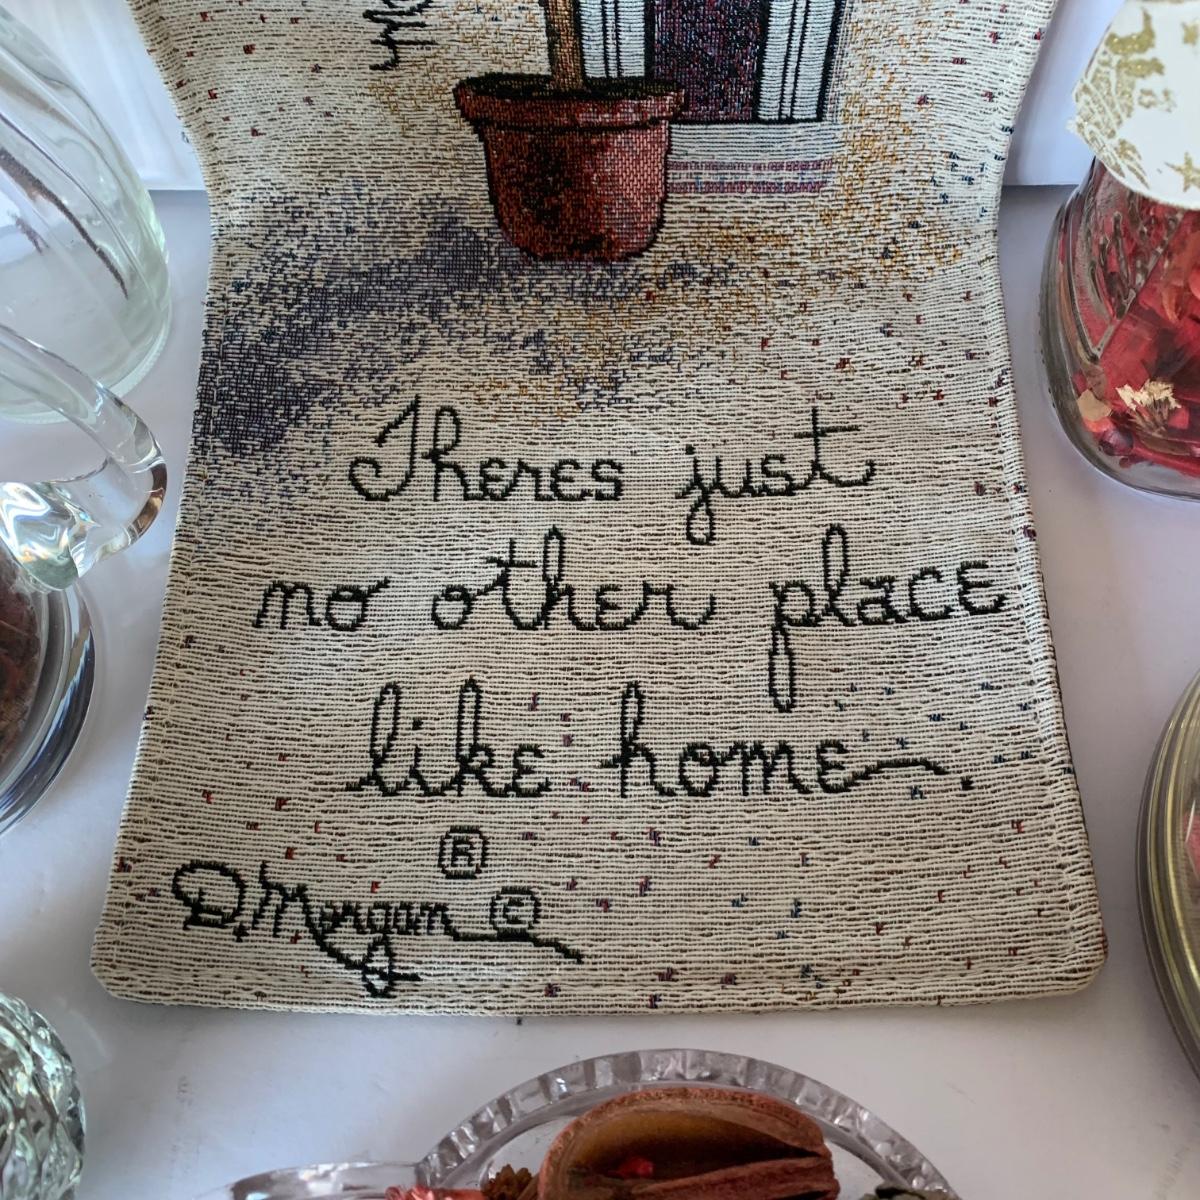 Theres just
no other place
like home.
®
D. Morgan ©